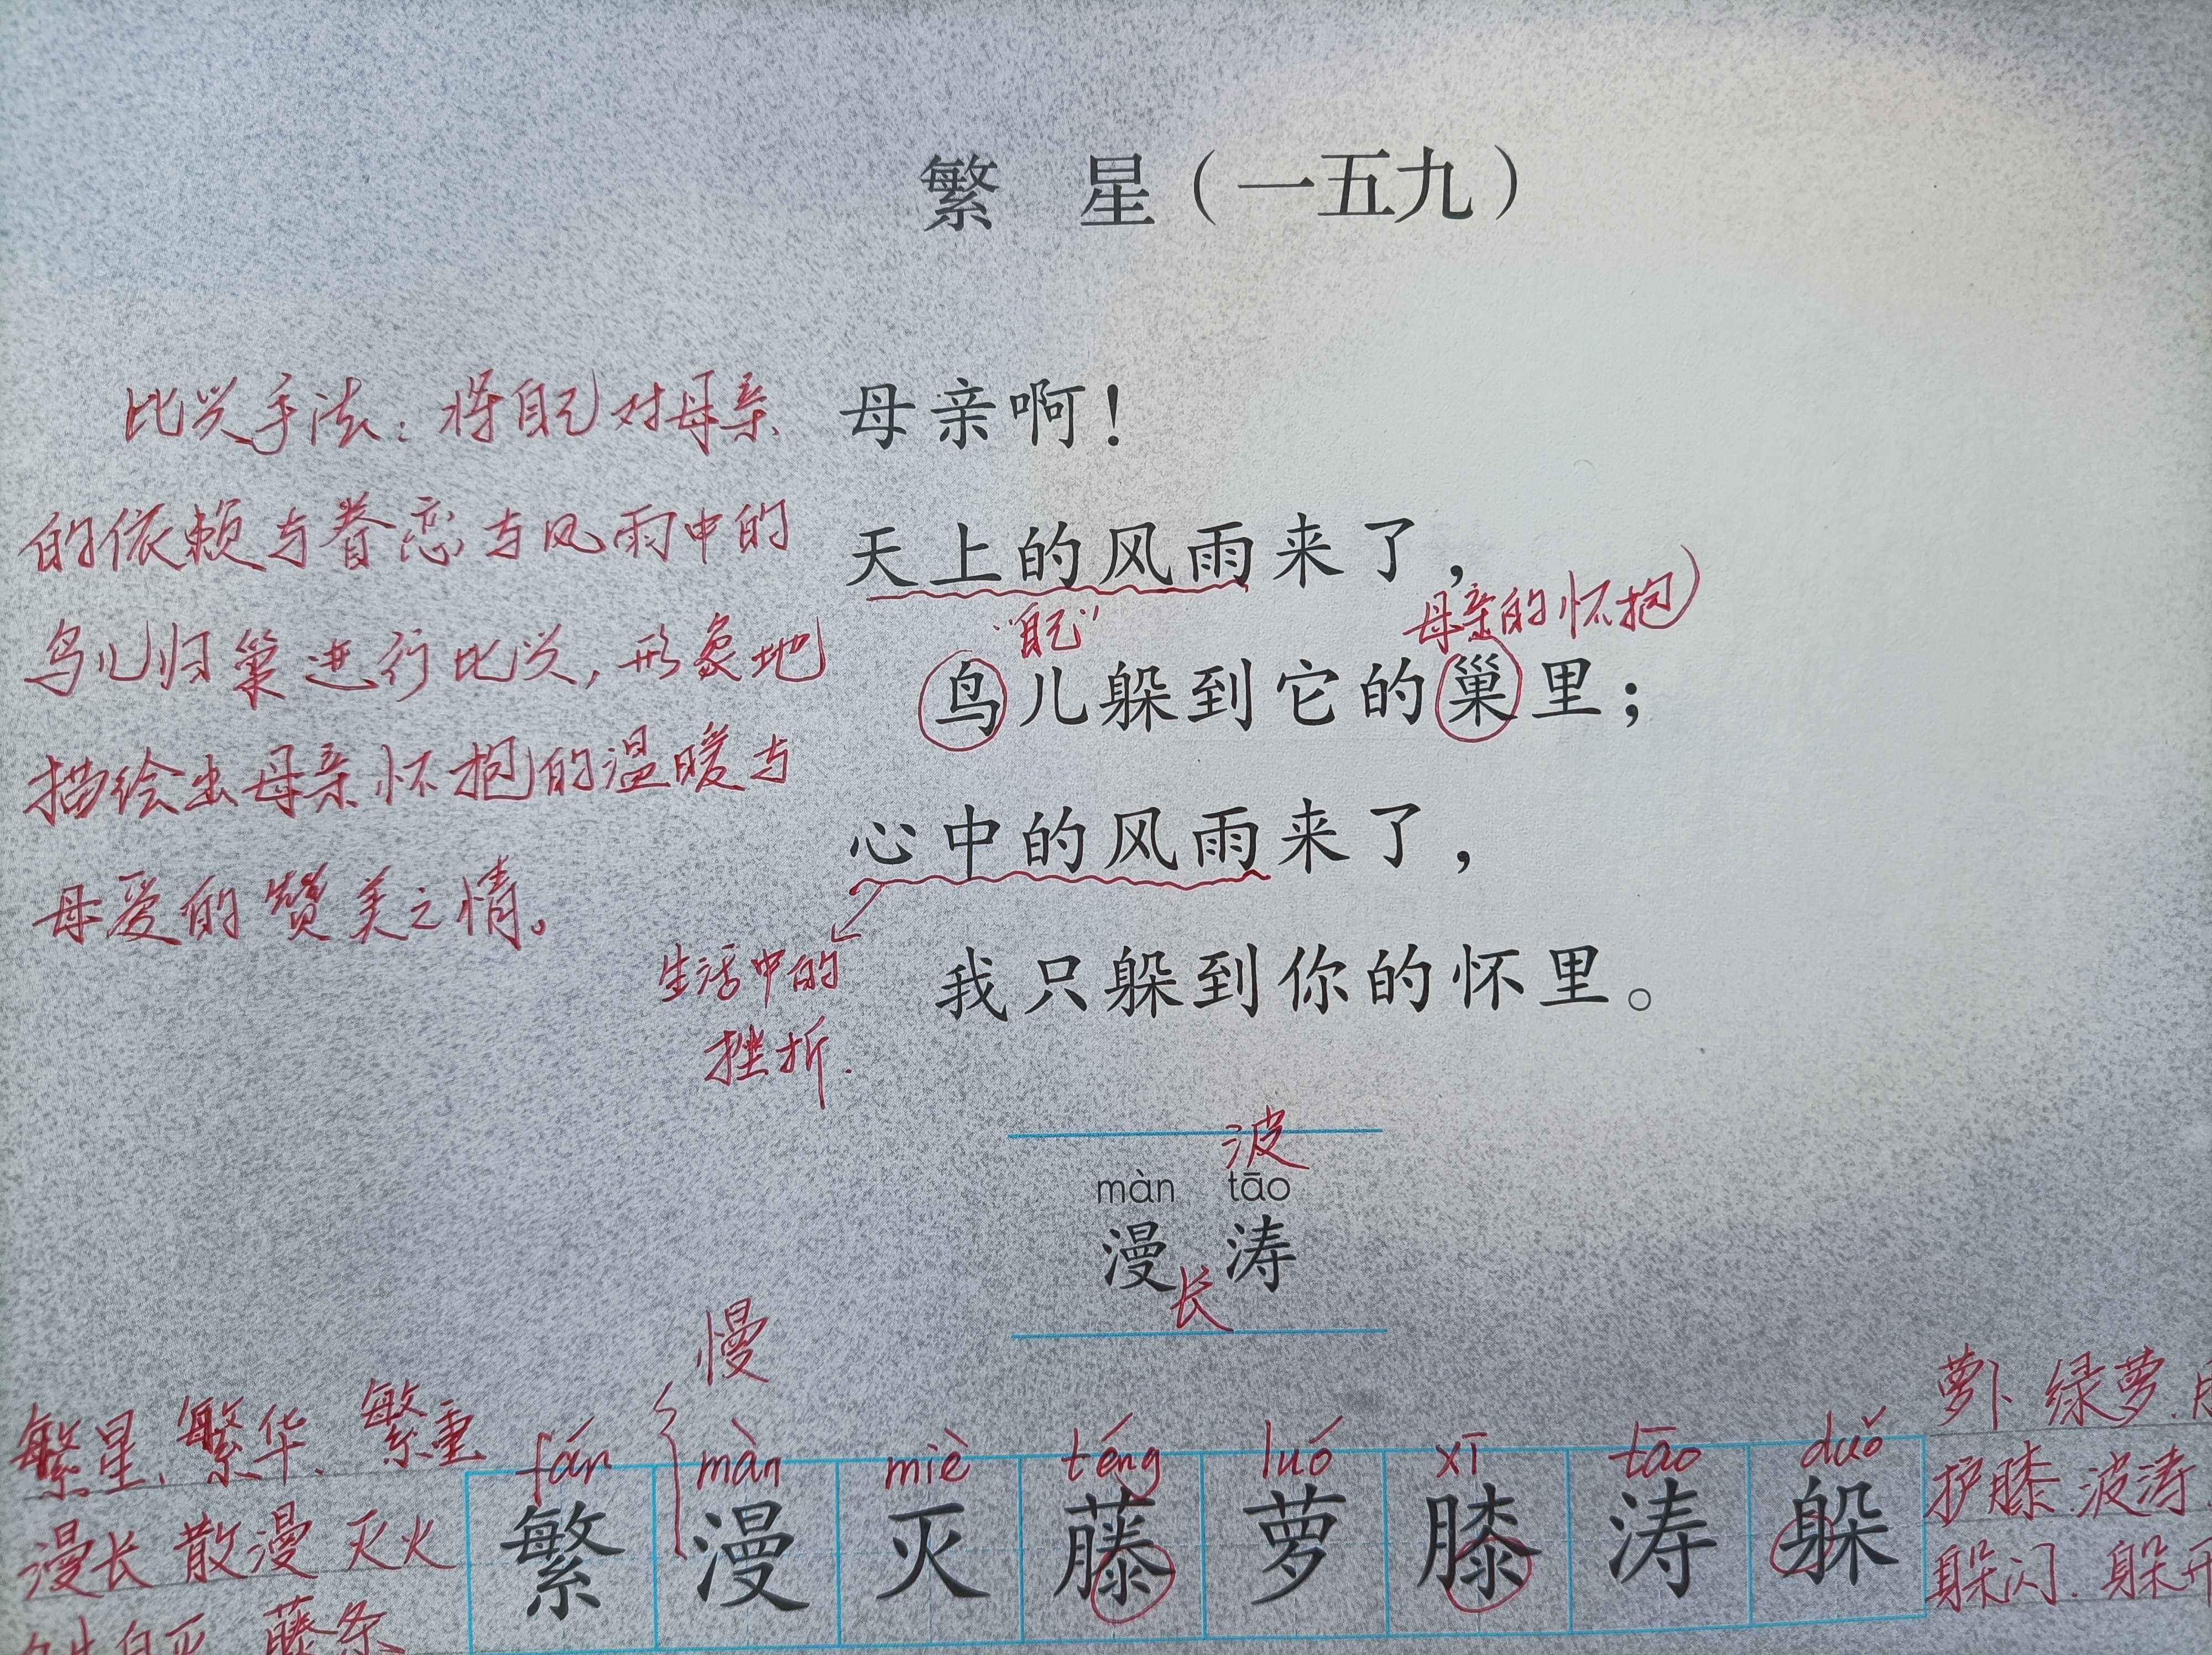 繁 星（一五九）
比兴手法：将自己对母亲
的依赖与眷恋与风雨中的
鸟儿归巢进行比兴，形象地
描绘出母亲怀抱的温暖与
母爱的赞美之情。
母亲啊！
天上的风雨来了，
“自己”
母亲的怀抱）
鸟儿躲到它的巢里；
心中的风雨来了，
生活中的
挫折.
我只躲到你的怀里。
波
màn tāo
漫 涛
长
慢
繁星、繁华、繁重
漫长 散漫 灭火
自灭 藤条
fán màn miè téng luó xī tāo duǒ
繁 漫 灭 藤 萝 膝 涛 躲
萝卜 绿萝.
护膝.波涛
躲闪.躲开